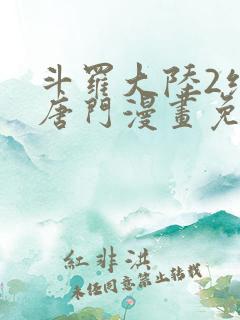 斗羅大陸2
唐門漫畫免
紅非洪
未经同意禁止转载